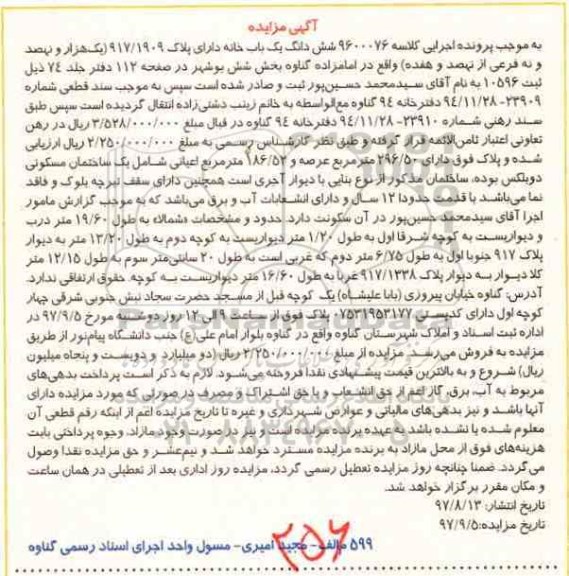 آگهی مزایده
به موجب پرونده اجرایی کلاسه ۹۶۰۰۰۷۶ شش دانگ یک باب خانه دارای پلاک ۹۱۷/۱۹۰۹ (یک‌هزار و نهصد
و نه فرعی از نهصد و هفده) واقع در امامزاده گناوه بخش شش بوشهر در صفحه ۱۱۲ دفتر جلد ۷۴ ذیل
ثبت ۱۰۵۹۶ به نام آقای سیدمحمد حسین‌پور ثبت و صادر شده است سپس به موجب سند قطعی شماره
۲۳۹۰۹- ۹۴/۱۱/۲۸ دفترخانه ۹۴ گناوه مع‌الواسطه به خانم زینب دشتی‌زاده انتقال گردیده است سپس طبق
سند رهنی شماره ۲۳۹۱۰- ۹۴/۱۱/۲۸ دفترخانه ۹۴ گناوه در قبال مبلغ ۳/۵۲۸/۰۰۰/۰۰۰ ریال در رهن
تعاونی اعتبار ثامن‌الائمه قرار گرفته و طبق نظر کارشناس رسمی به مبلغ ۲/۲۵۰/۰۰۰/۰۰۰ ریال ارزیابی
شده و پلاک فوق دارای ۲۹۶/۵۰ متر مربع عرصه و ۱۸۶/۵۲ مترمربع اعیانی شامل یک ساختمان مسکونی
دوبلکس بوده، ساختمان مذکور از نوع بنایی با دیوار آجری است همچنین دارای سقف تیرچه بلوک و فاقد
نما می‌باشد با قدمت حدودا ۱۲ سال و دارای انشعابات آب و برق می‌باشد که به موجب گزارش مامور
اجرا آقای سیدمحمد حسین‌پور در آن سکونت دارد. حدود و مشخصات «شمالا» به طول ۱۹/۶۰ متر درب
و دیواریست به کوچه شرقا اول به طول ۱/۲۰ متر دیواریست به کوچه دوم به طول ۱۳/۲۰ متر به دیوار
پلاک ۹۱۷ جنوبا اول به طول ۶/۷۵ متر دوم که غربی است به طول ۲۰ سانتی‌متر سوم به طول ۱۲/۱۵ متر
کلا دیوار به دیوار پلاک ۹۱۷/۱۳۳۸ غربا به طول ۱۶/۶۰ متر دیواریست به کوچه. حقوق ارتفاقی ندارد.
آدرس: گناوه خیابان پیروزی (بابا علیشاه) یک کوچه قبل از مسجد حضرت سجاد نبش جنوبی شرقی چهار
کوچه اول دارای کدپستی ۰۷۵۳۱۹۵۳۱۷۷ پلاک فوق از ساعت ۹ الی ۱۲ روز دوشنبه مورخ ۹۷/۹/۵ در
اداره ثبت اسناد و املاک شهرستان گناوه واقع در گناوه بلوار امام علی(ع) جنب دانشگاه پیام‌نور از طریق
مزایده به فروش می‌رسد. مزایده از مبلغ ۲/۲۵۰/۰۰۰/۰۰۰ ریال (دو میلیارد و دویست و پنجاه میلیون
ریال) شروع و به بالاترین قیمت پیشنهادی نقدا فروخته می‌شود. لازم به ذکر است پرداخت بدهی‌های
مربوط به آب، برق، گاز اعم از حق انشعاب و یا حق اشتراک و مصرف در صورتی که مورد مزایده دارای
آنها باشد و نیز بدهی‌های مالیاتی و عوارض شهرداری و غیره تا تاریخ مزایده اعم از اینکه رقم قطعی آن
معلوم شده یا نشده باشد به عهده برنده مزایده است و نیز در صورت وجود مازاد، وجوه پرداختی بابت
هزینه‌های فوق از محل مازاد به برنده مزایده مسترد خواهد شد و نیم‌عشر و حق مزایده نقدا وصول
می‌گردد. ضمنا چنانچه روز مزایده تعطیل رسمی گردد، مزایده روز اداری بعد از تعطیلی در همان ساعت
و مکان مقرر برگزار خواهد شد.
تاریخ انتشار: ۹۷/۸/۱۳
تاریخ مزایده:۹۷/۹/۵
۵۹۹ م/الف- مجید امیری- مسول واحد اجرای اسناد رسمی گناوه
۲۵۶